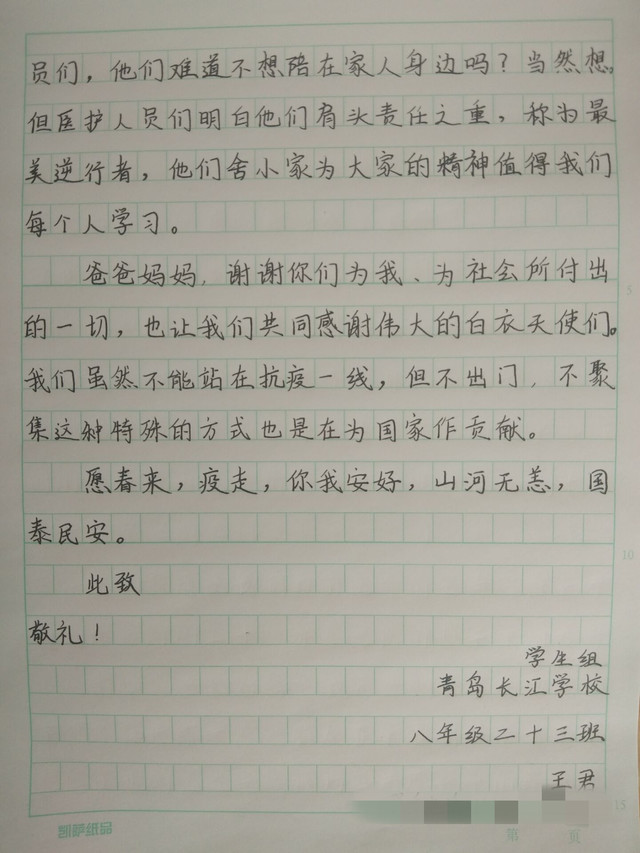 员们，他们难道不想陪在家人身边吗？当然想。
但医护人员们明白他们肩头责任之重，称为最
美逆行者，他们舍小家为大家的精神值得我们
每个人学习。
爸爸妈妈，谢谢你们为我、为社会所付出
的一切，也让我们共同感谢伟大的白衣天使们。
我们虽然不能站在抗疫一线，但不出门、不聚
集这种特殊的方式也是在为国家作贡献。
愿春来，疫走，你我安好，山河无恙，国
泰民安。
此致
敬礼！
学生组
青岛长江学校
八年级二十三班
王君
5
10
15
第 页